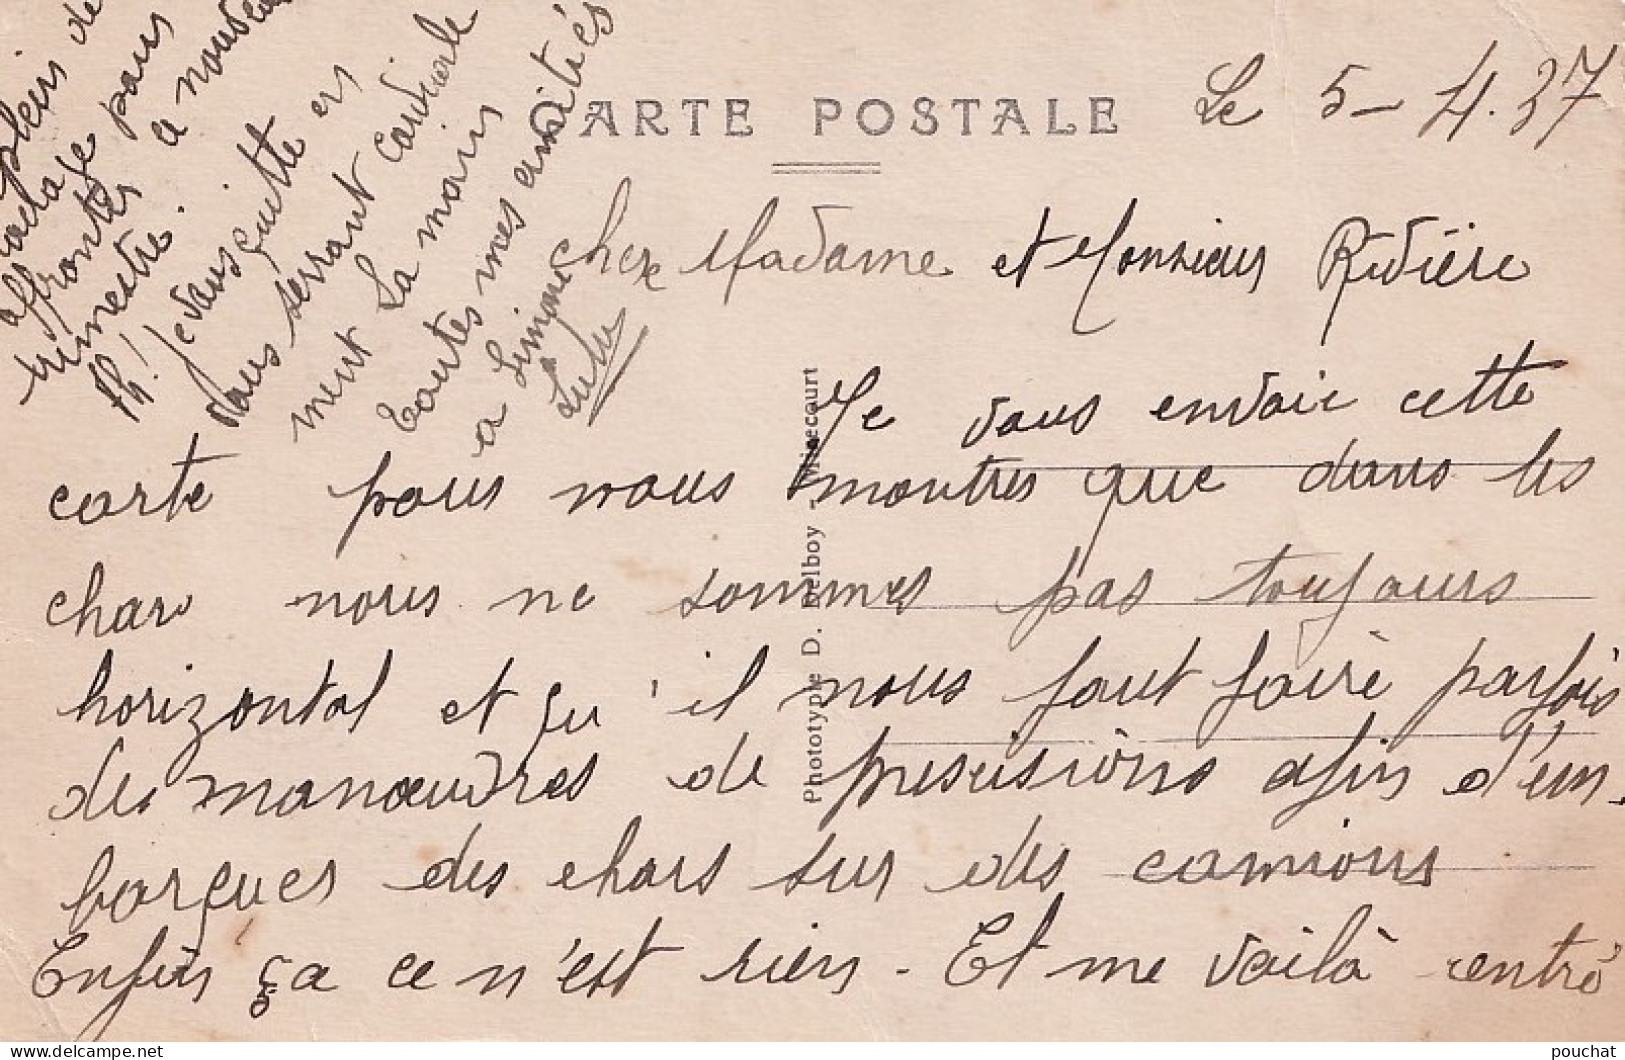 CARTE POSTALE
Le 5-4.37
Cher Madame et Monsieur Rivière
Je vous envoie cette
carte pour vous montrer que dans les
chars nous ne sommes pas toujours
horizontal et qu'il nous faut faire parfois
des manœuvres de presisions afin d'em.
barquer des chars sur des camions
Enfin ça ce n'est rien - Et me voilà rentré
plein de
pour
affronter à nouveau
trimestre.
Je vous quitte en
vous serrant cordiale
ment la main
toutes mes amitiés
a Simone
Lulu
Phototypie D. Delboy - Mirecourt
pouchat